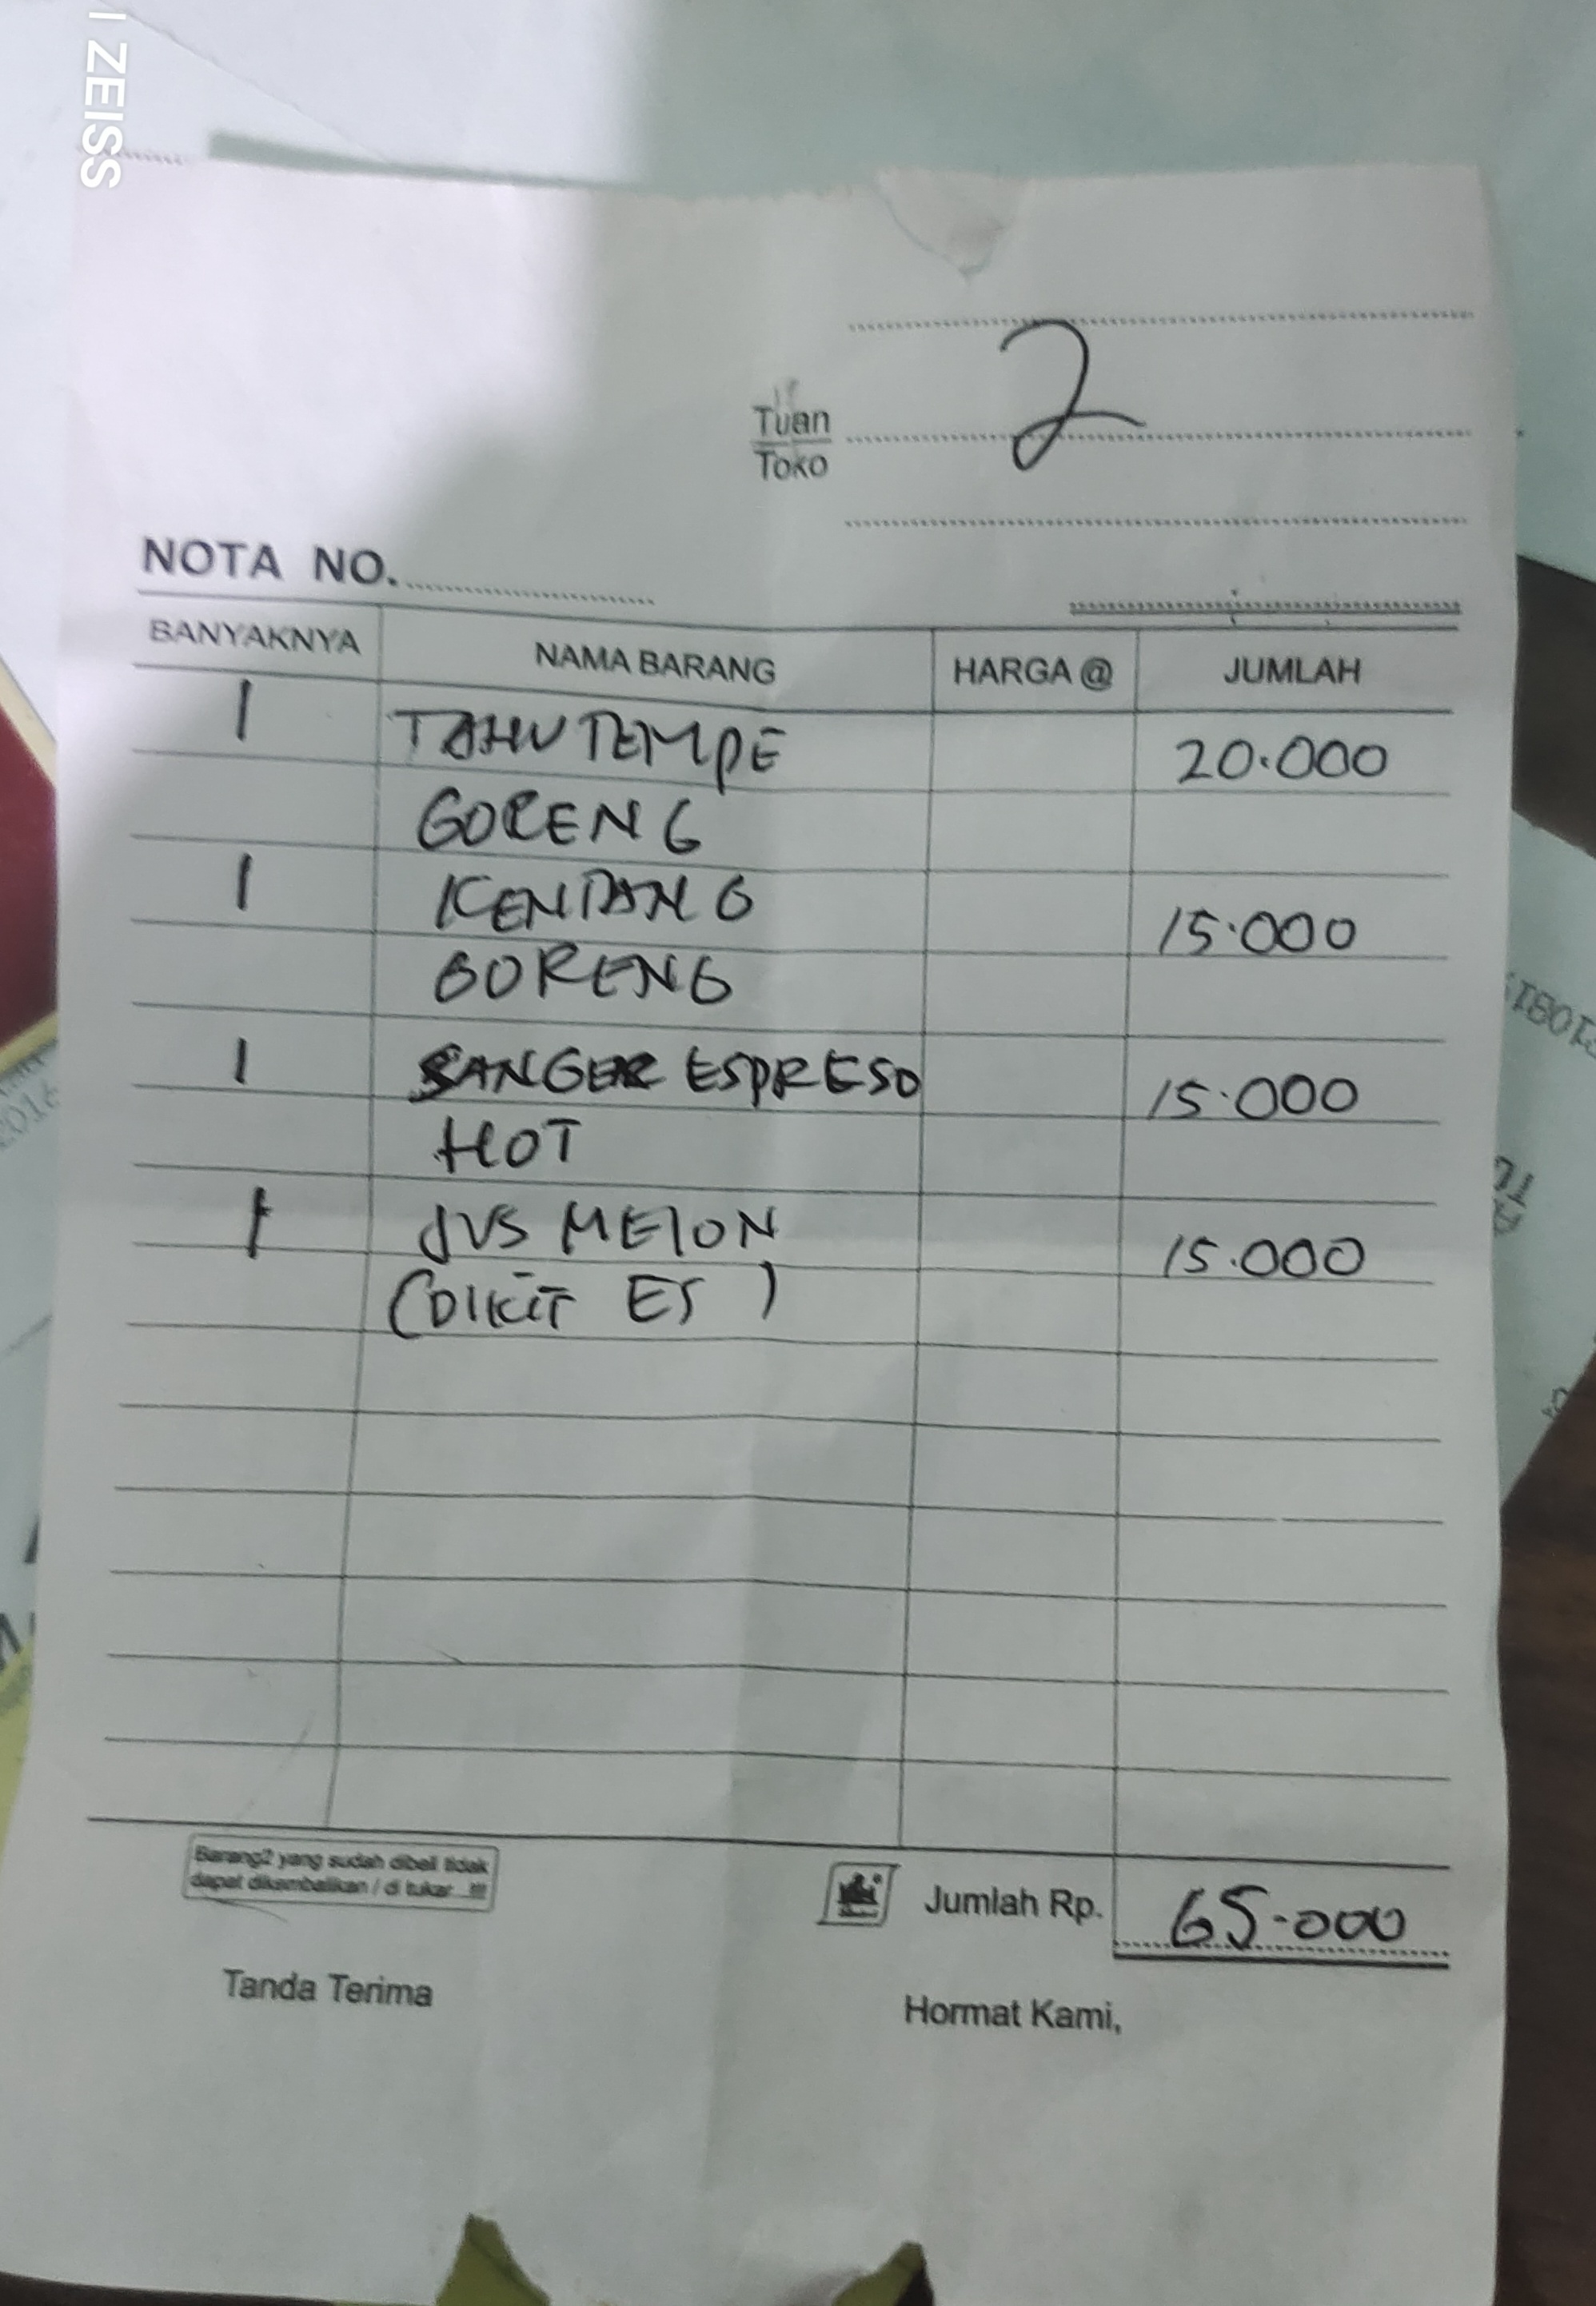 ZEISS
2
Tuan
Toko
NOTA NO.
BANYAKNYA NAMA BARANG HARGA @ JUMLAH
1 TAHU TEMPE 20.000
GORENG
1 KENTANG 15.000
GORENG
1 SANGER ESPRESO 15.000
HOT
1 JUS MELON 15.000
(DIKIT ES)
Barang2 yang sudah dibeli tidak
dapat dikembalikan / di tukar ...!!!
Jumlah Rp. 65.000
Tanda Terima Hormat Kami,